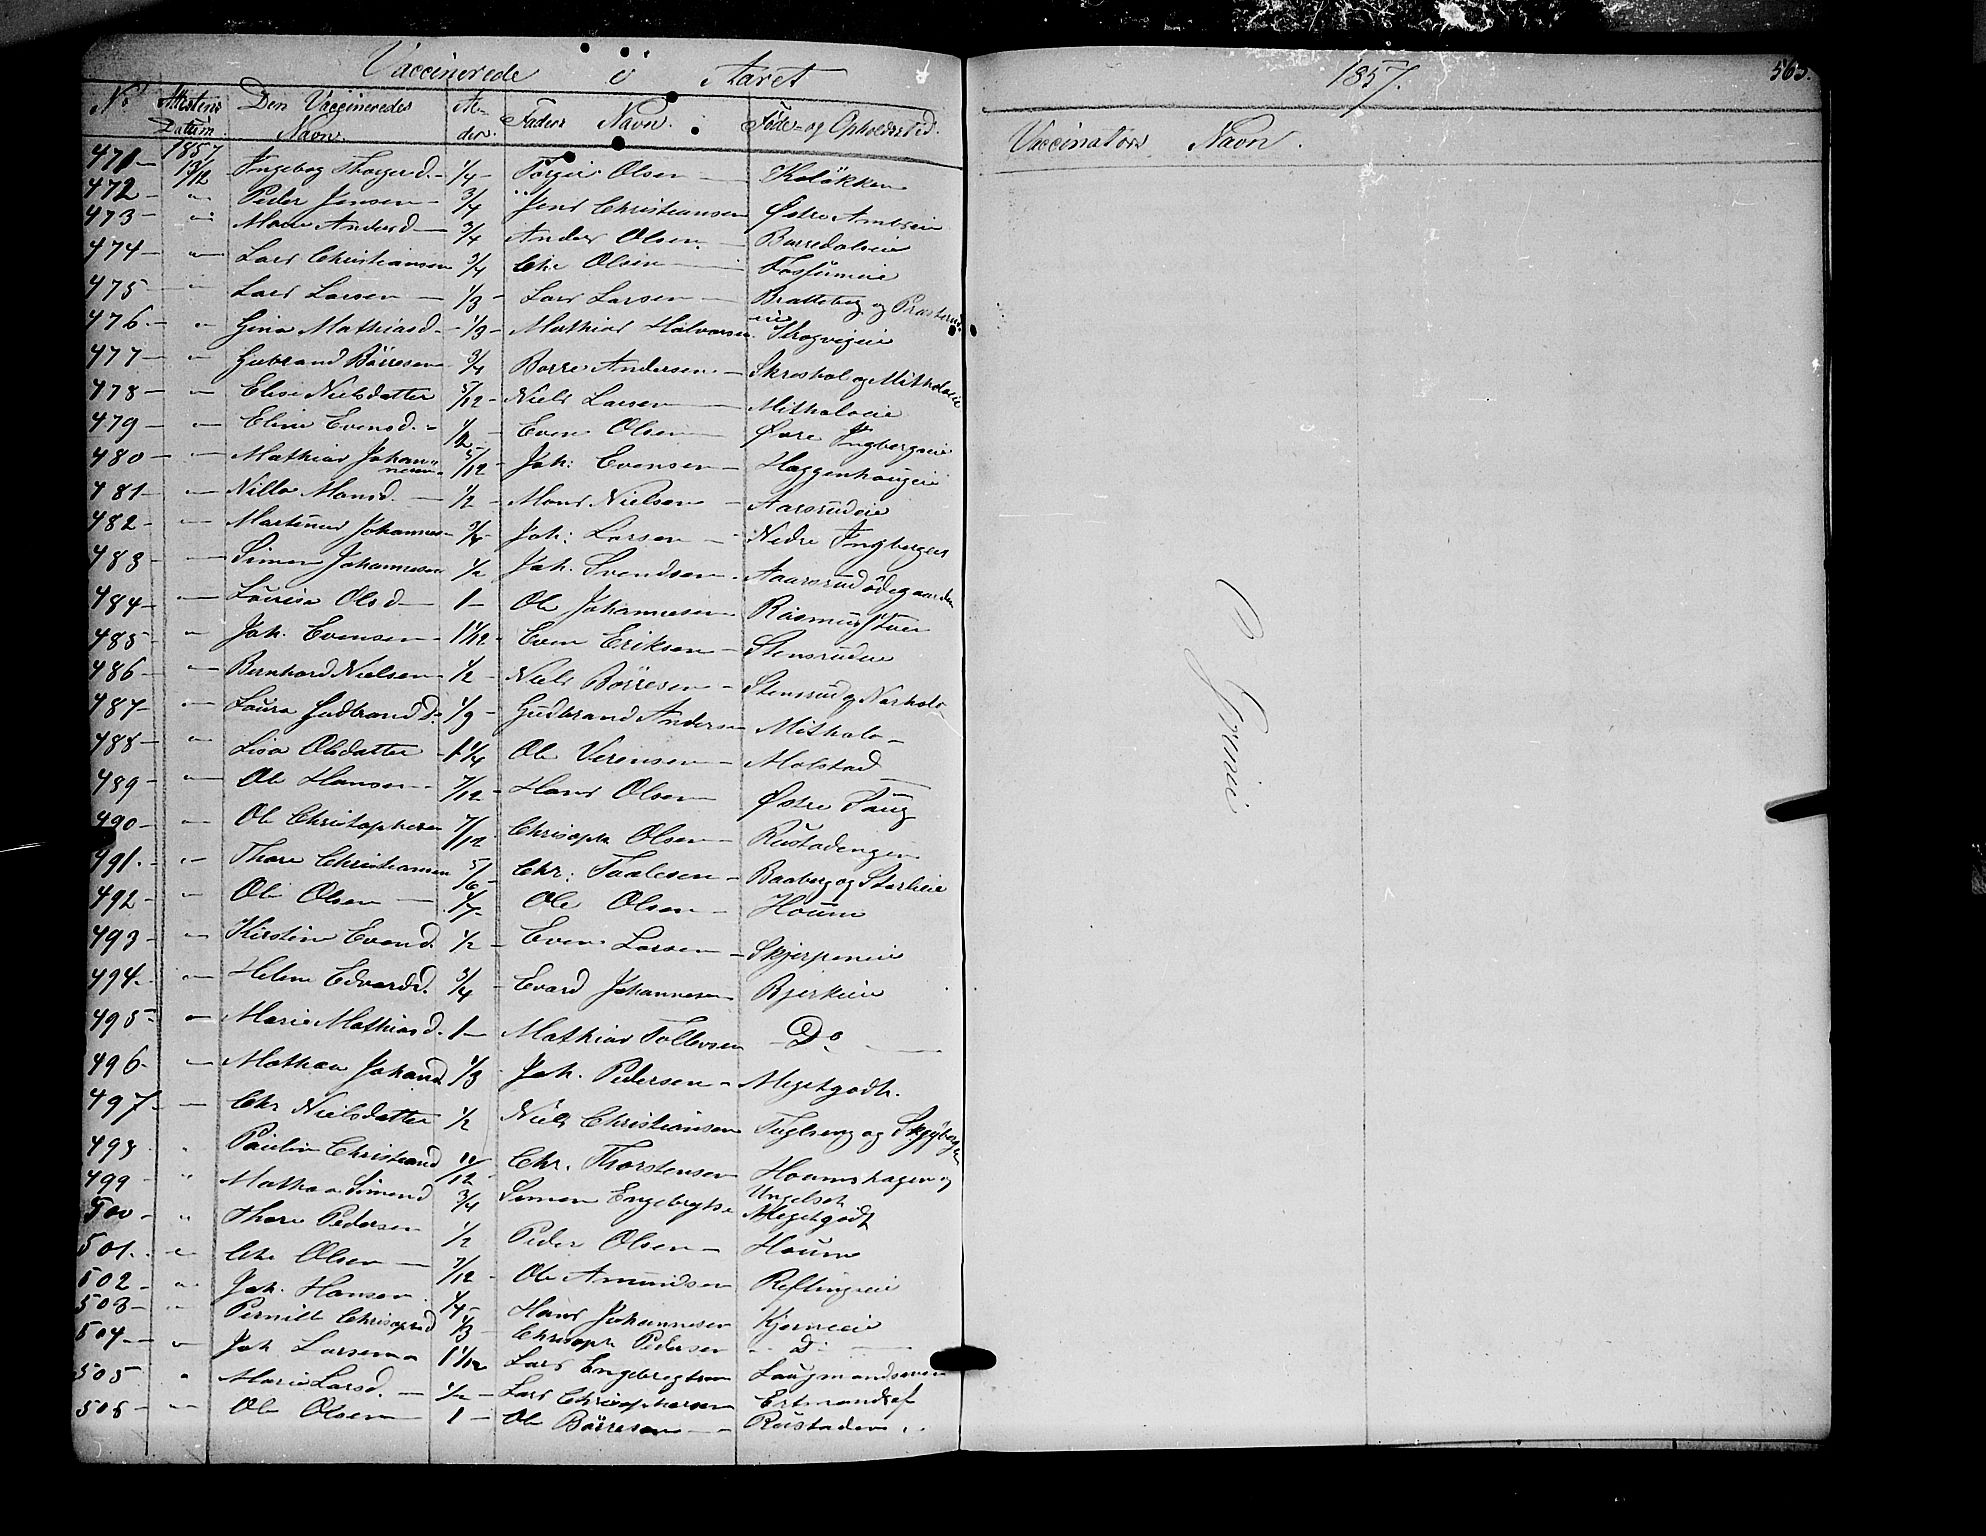 Vaccinerede i Aaret 1857. 565.
No Attestens Datum. Den Vaccineredes Navn. Al- der. Faders Navn. Føde- og Opholdssted. Vaccinators Navn.
1857
471- 13/12 Ingebog Thorgersd. 1/4 Torgier Olsen Koløkken
472- " Peder Jensen 3/4 Jens Christiansen Østre Amlseie
473- " Maria Andersd 3/4 Anders Olsen Borredalseie
474- " Lars Christiansen 3/4 Chr Olsen Fossumeie
475- " Lars Larsen 1/3 Lars Larsen Bratteberg og Præsterud
eie
476- " Gina Mathiasd. 1/3 Mathias Halvorsen Skogvigeie
477- " Gubrand Børresen 3/4 Borre Andersen Skreshol og Mitholoeie
478- " Elise Nielsdatter 5/12 Niels Larsen Mitholoeie
479- " Eline Evensd. 1/2 Even Olsen Øvre Ingbergseie
480- " Mathias Johan-
nesen 5/12 Joh: Evensen Haggenhaugeie
481- " Nilla Monsd. 1/2 Mons Nielsen Aarsrudeie
482- " Martinus Johannes 3/4 Joh: Larsen Nedre Ingberg
483- " Simen Johannesen 1/2 Joh. Svendsen Aaarsrudødegaarden
484- " Lovisa Olsd 1- Ole Johannesen Rasmusstuen
485- " Joh. Evensen 1 1/12 Even Eriksen Stensrudeie
486- " Bernhard Nielsen 1/2 Niels Börresen Stensrud og Narholo
487- " Laura Gudbrandsd 1/3 Gudbrand Andersen Mitholo-
488- " Lisa Olsdatter 1 1/4 Ole Verensen Molstad
489- " Ole Hansen 7/12 Hans Olsen Østre Saug
490- " Ole Christophersen 7/12 Chrisoph Olsen Rustadengen
491- " Thore Christiansen 5/6 Chr: Taalesen Baaberg og Storlieie
492- " Ole Olsen 4/7 Ole Olsen Houm
493- " Kirstine Evensd. 1/2 Even Larsen Skjerpeneie
494- " Helene Edvardsd. 3/4 Evard Johannesen Bjerkeeie
495- " Maria Mathiasd. 1- Mathias Tollevsen Do
496- " Mathea Johansd 1/3 Joh. Pedersen Megetgodt.
497- " Chr Nielsdatter 1/2 Niels Christiansen Fuglseng og
498 " Pauline Christiansd 11/12 Chr. Thorstensen Houmshagen og
Ungelset
499 " Mathea Simensd 3/4 Simen Engebrgts Megetgodt
500- " Thore Pedersen 1/2 Peder Olsen Houm
501. " Chr Olsen 7/12 Ole Amundsen Reflingseie
502- " Joh. Hansen Hans Johannesen Kjerneeie
503- " Pernille Chrisophsd 1/3 Chrisoph Pedersen D:
504- " Joh Larsen 1 1/12 Lars Engebregtsen Laugmandseneie
505 " Maria Larsd. 1/2 Lars Chrisophersen
506- " Ole Olsen 1- Ole Börresen Rustaden